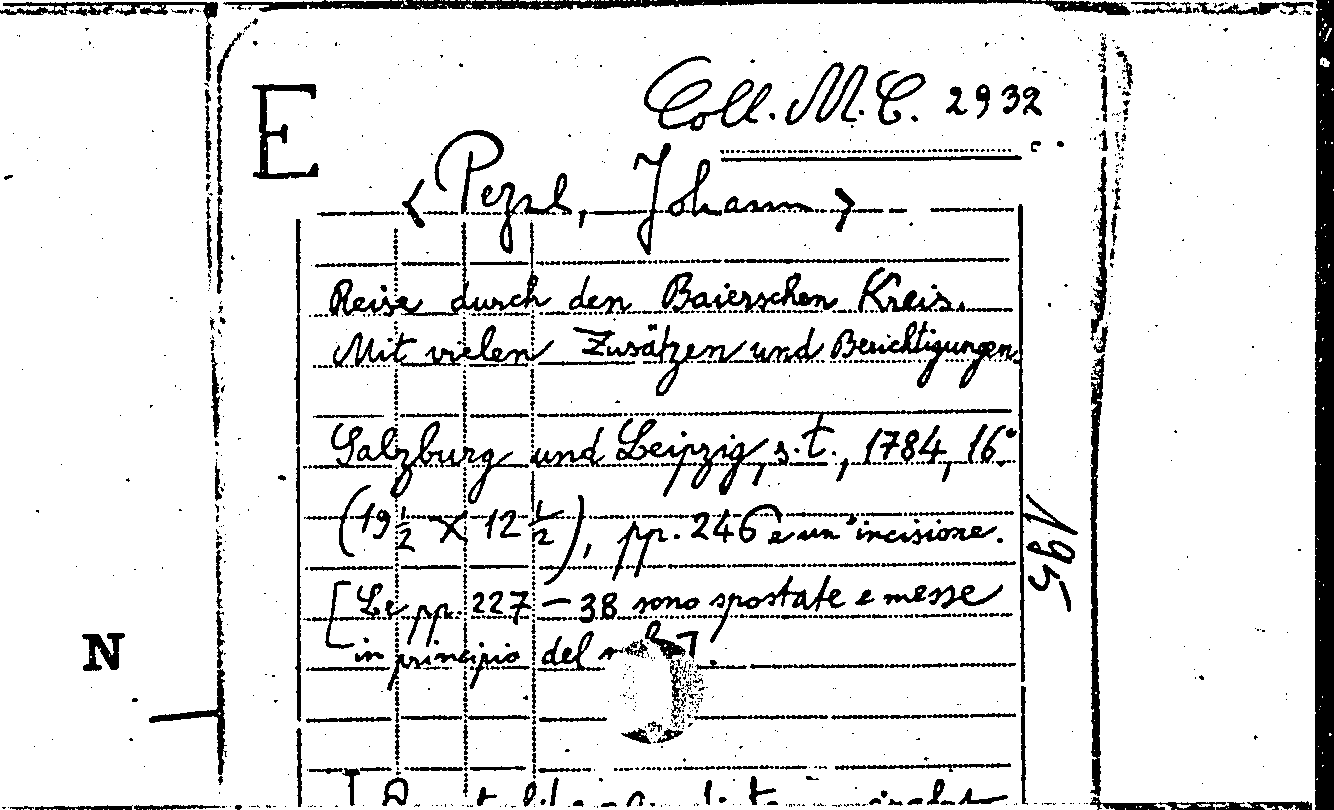 E
Coll. M. C. 2932
< Pezzl, Johann >
Reise durch den Baierschen Kreis.
Mit vielen Zusätzen und Berichtigungen.
Salzburg und Leipzig, s.t., 1784, 16°
(19 1/2 X 12 1/2), pp. 246 e un'incisione.
[Le pp. 227 - 38 sono spostate e messe
in principio del
195
N